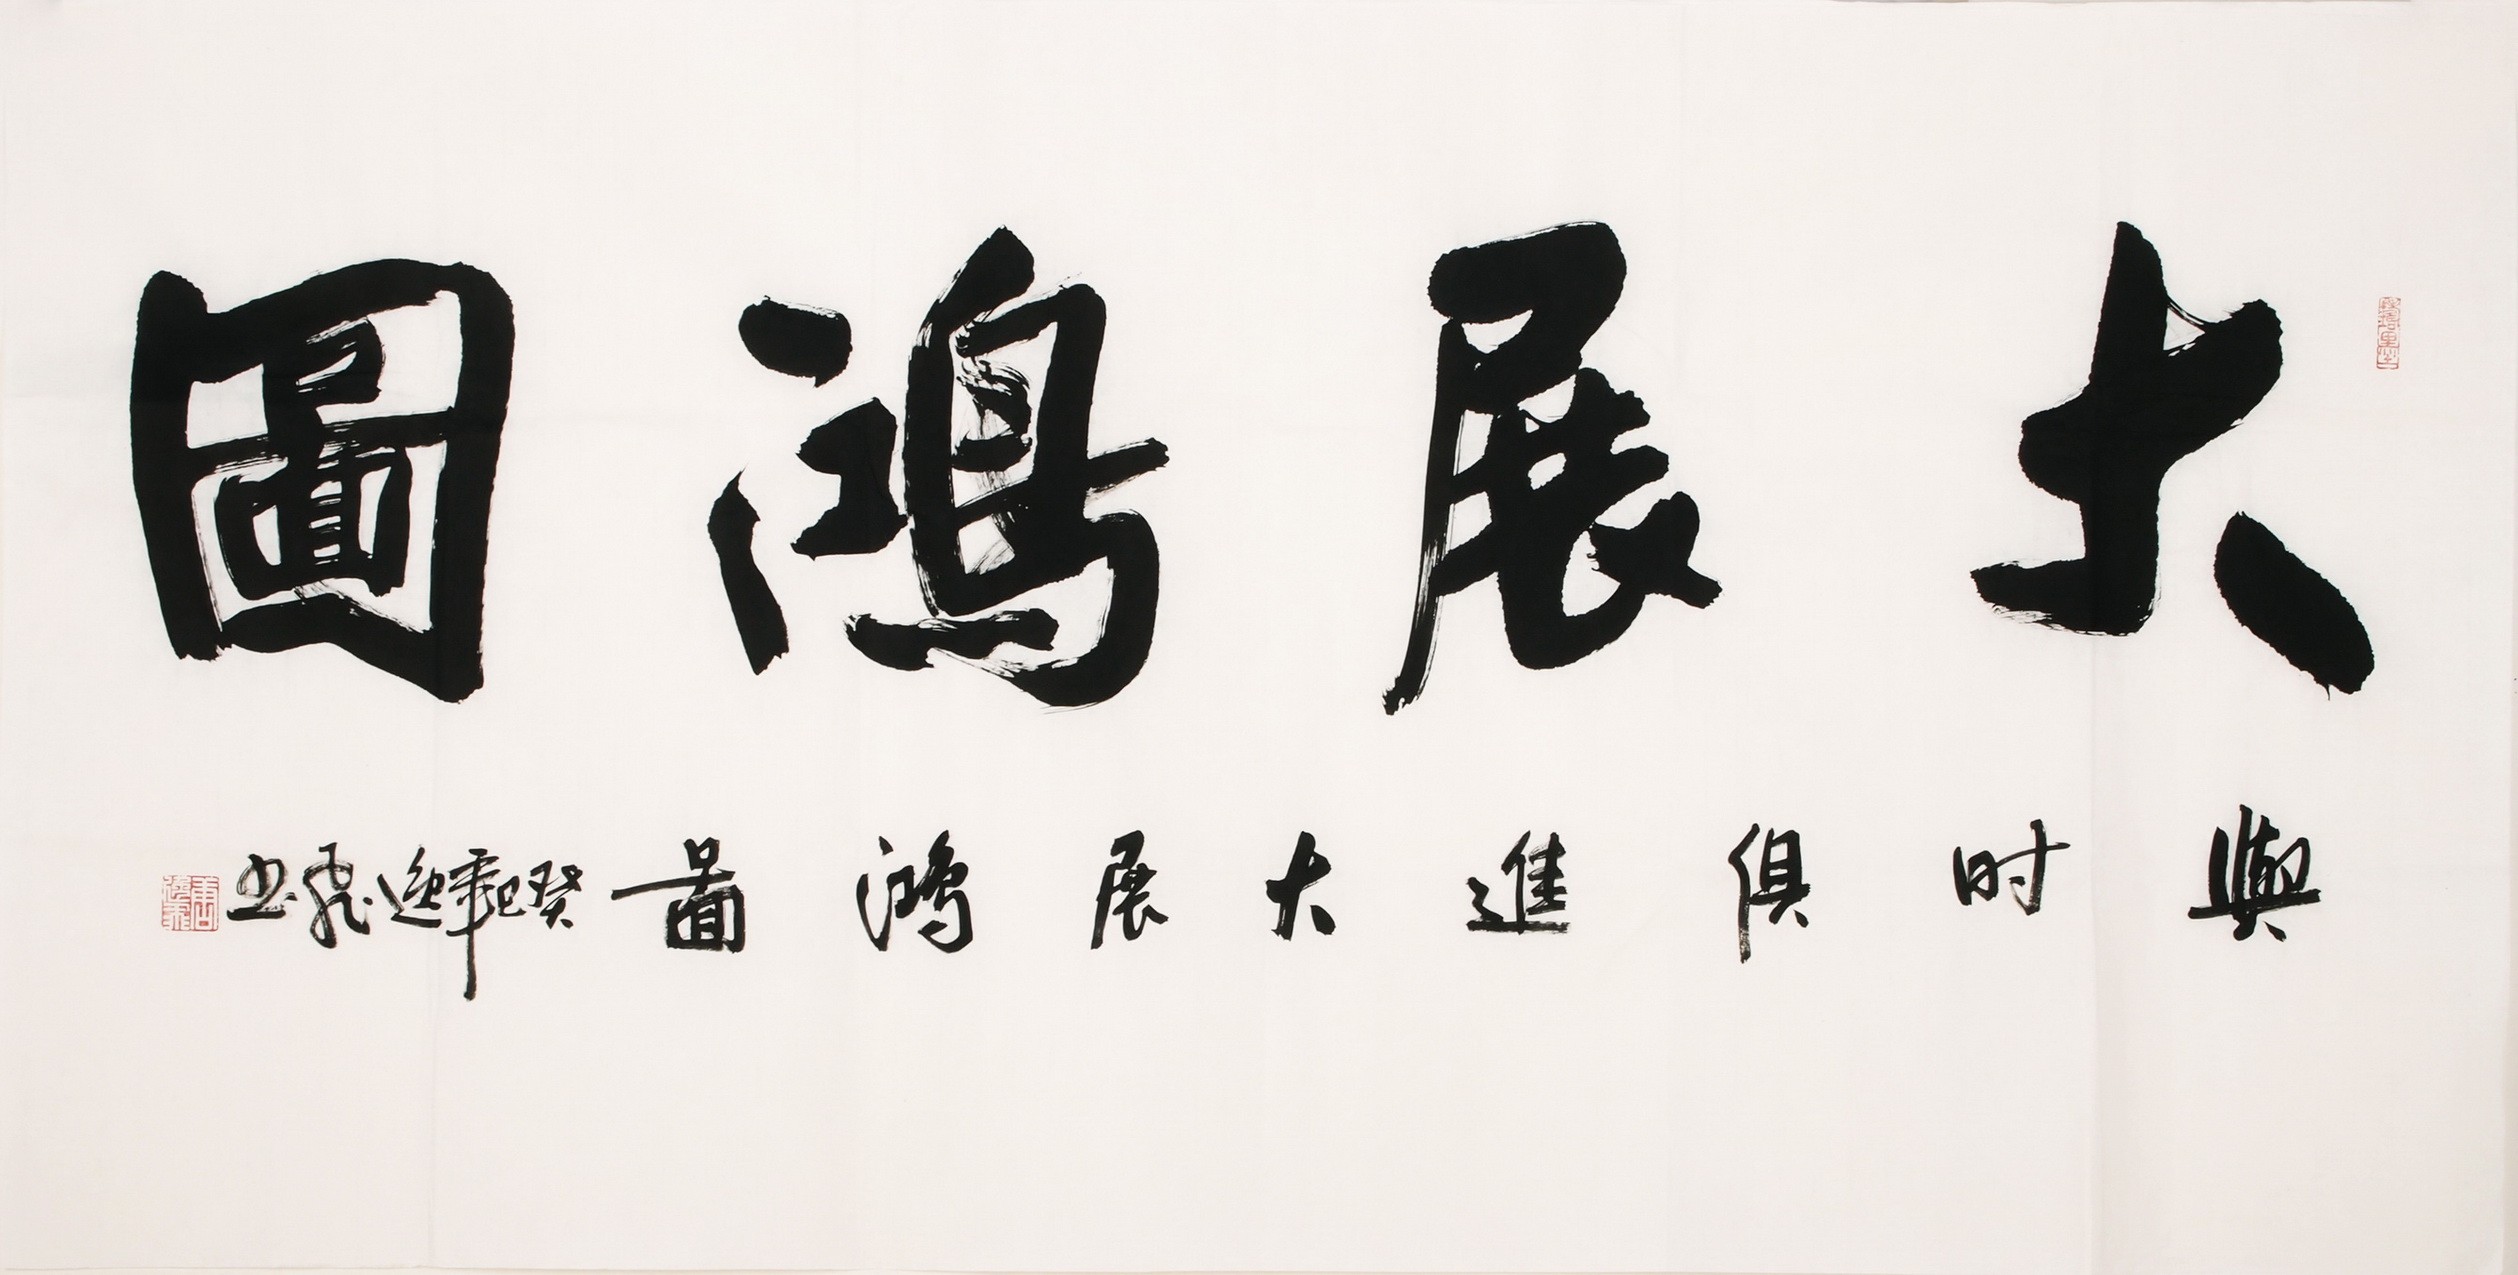 大展鴻圖
與时俱進大展鴻圖癸巳年逸飛书